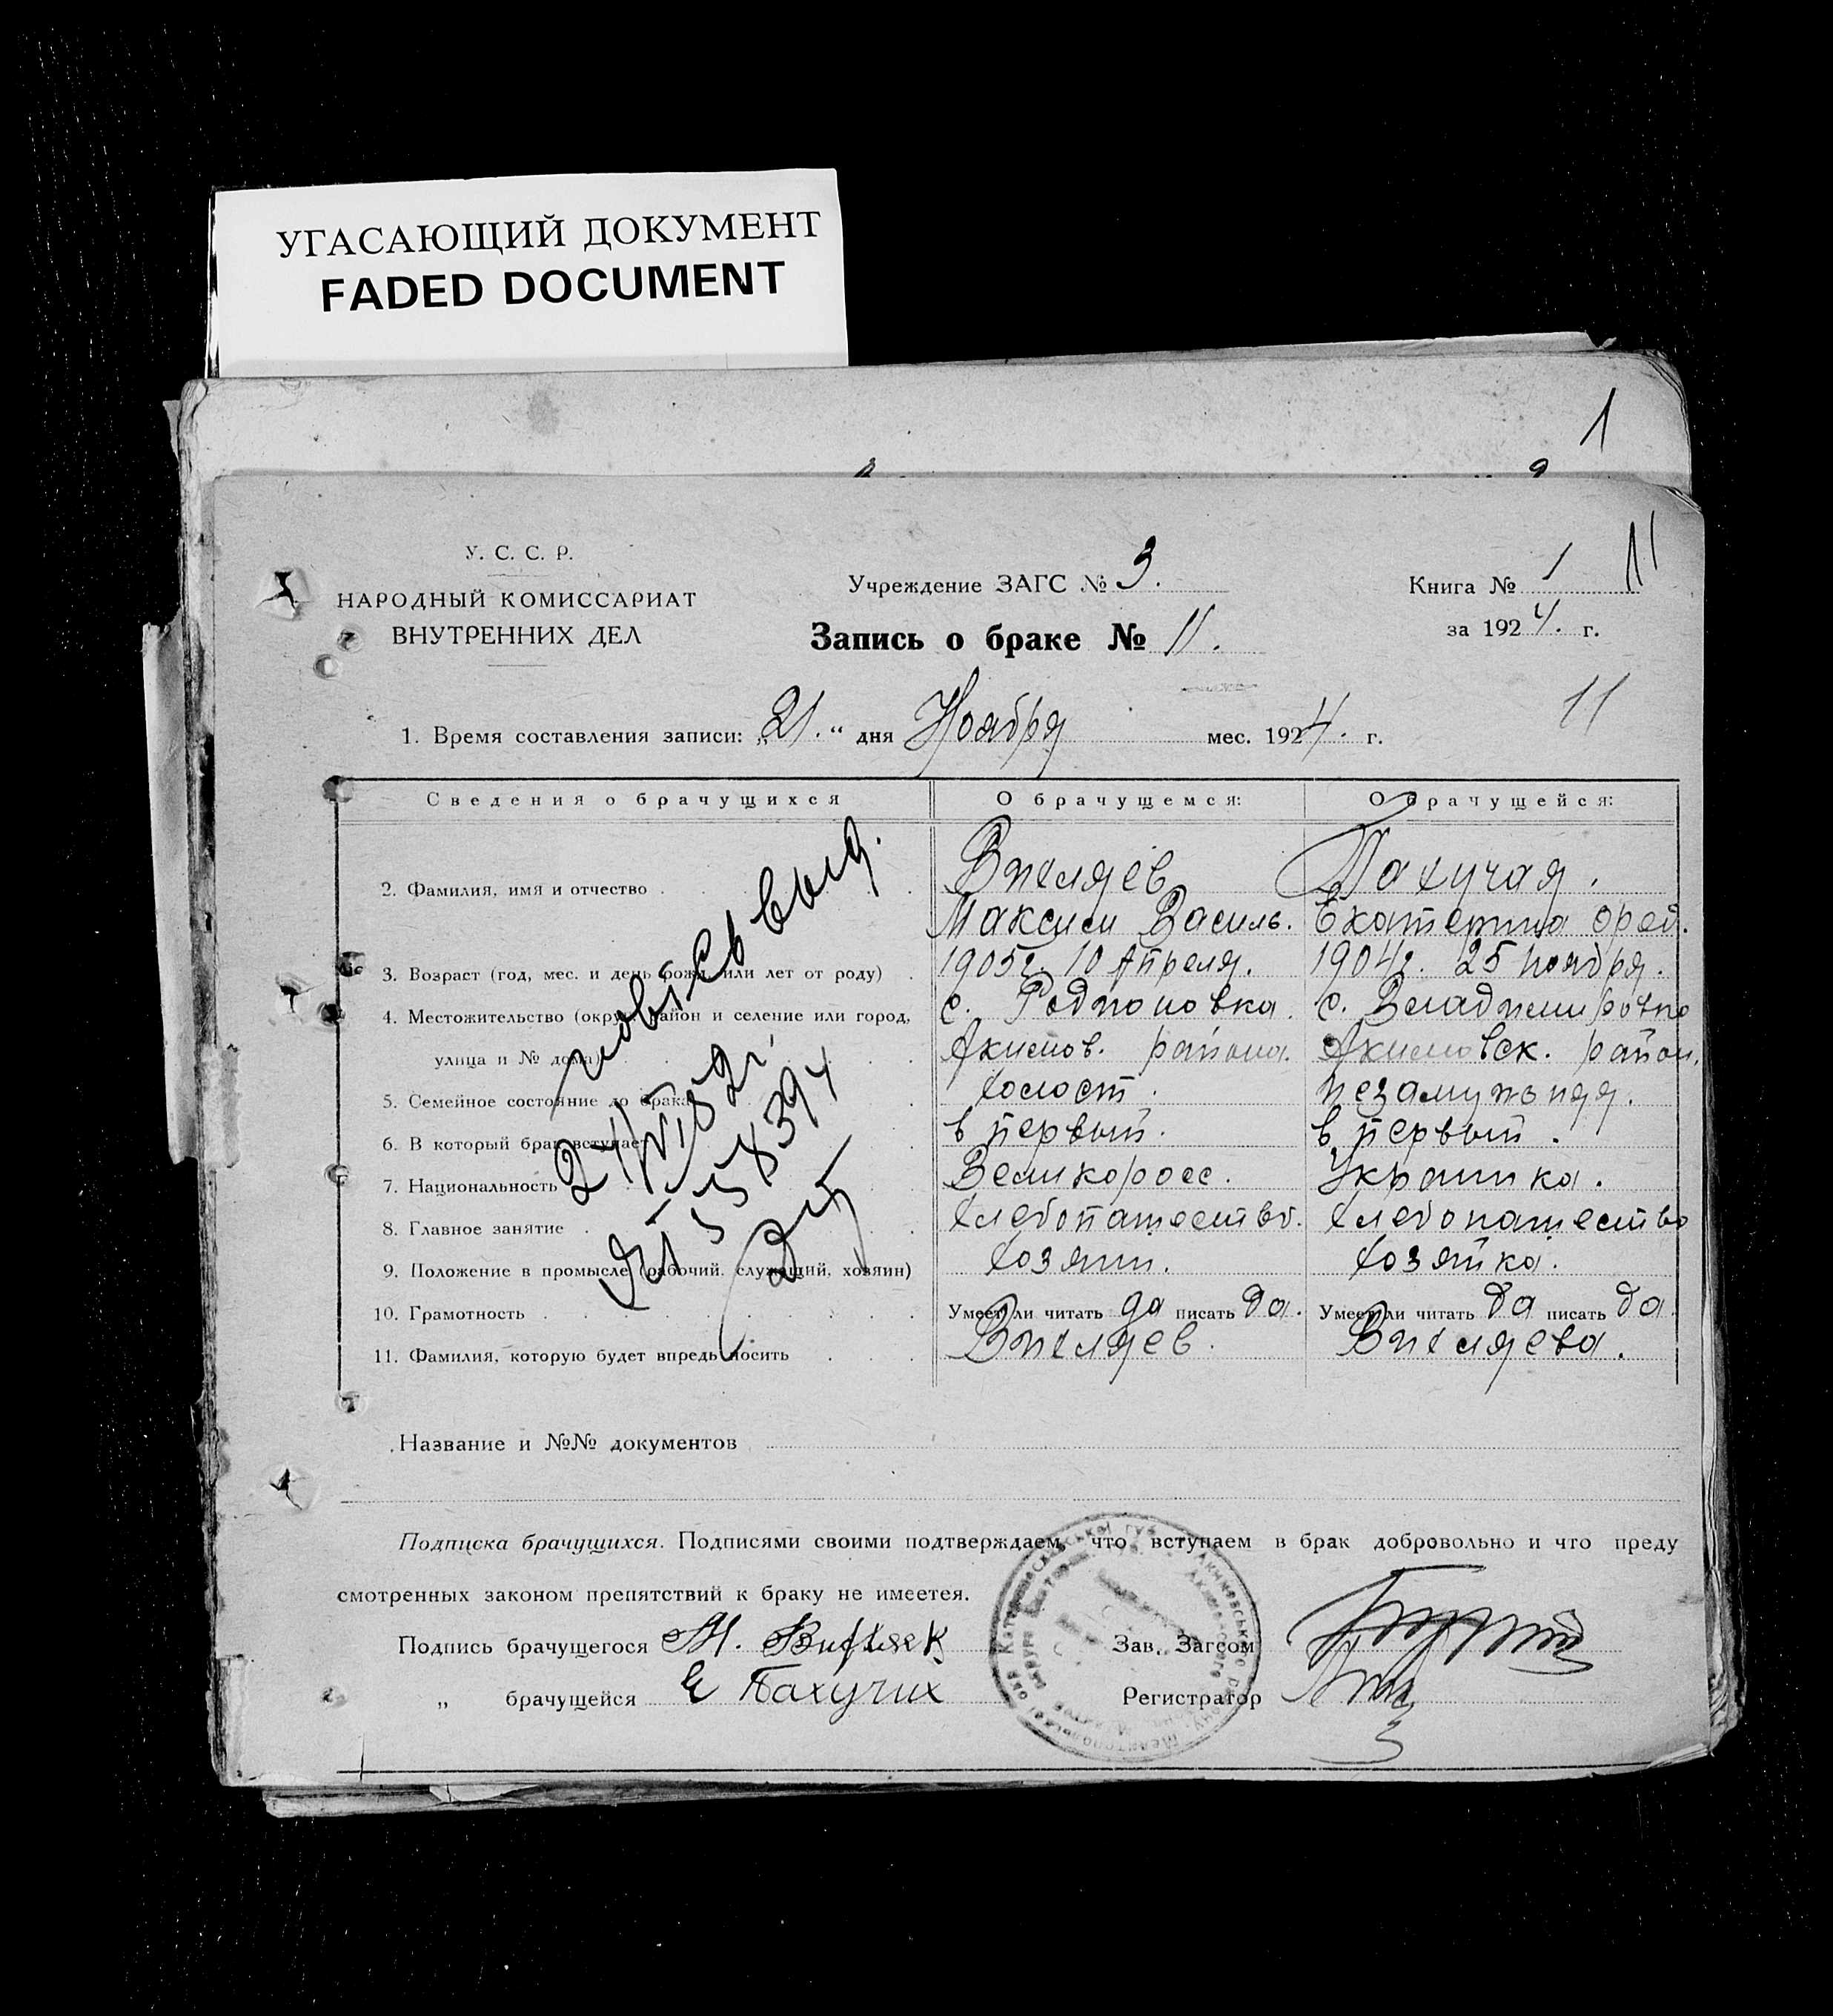 УГАСАЮЩИЙ ДОКУМЕНТ
FADED DOCUMENT
1
У. С. С. Р.
НАРОДНЫЙ КОМИССАРИАТ
ВНУТРЕННИХ ДЕЛ
Учреждение ЗАГС № 3.
Книга № 1
11
за 1924. г.
Запись о браке № 11.
11
1. Время составления записи: „21.“ дня Ноября мес. 1924. г.
Сведения о брачущихся
О брачущемся:
О брачущейся:
2. Фамилия, имя и отчество
Вихляев
Пахучая.
Максим Василь.
Екатерина
3. Возраст (год, мес. и день рожд. или лет от роду)
1905г. 10 Апреля.
1904г. 25 ноября.
4. Местожительство (округ, район и селение или город,
с. Родионовка.
с. Владимировка
улица и № дома)
Акимов. района.
Акимовск. район.
5. Семейное состояние до брака
холост.
незамужняя.
6. В который брак вступает
в первый.
в первый.
7. Национальность
Великоросс.
Украинка.
8. Главное занятие
хлебопашество.
хлебопашество
9. Положение в промысле (рабочий, служащий, хозяин)
хозяин.
хозяйка.
10. Грамотность
Умеет ли читать да писать да.
Умеет ли читать да писать да.
11. Фамилия, которую будет впредь носить
Вихляев.
Вихляева.
Название и №№ документов
Подписка брачущихся. Подписями своими подтверждаем, что вступаем в брак добровольно и что преду
смотренных законом препятствий к браку не имеетея.
Подпись брачущегося М.
Зав. Загсом
„ брачущейся Е Пахучих
Регистратор